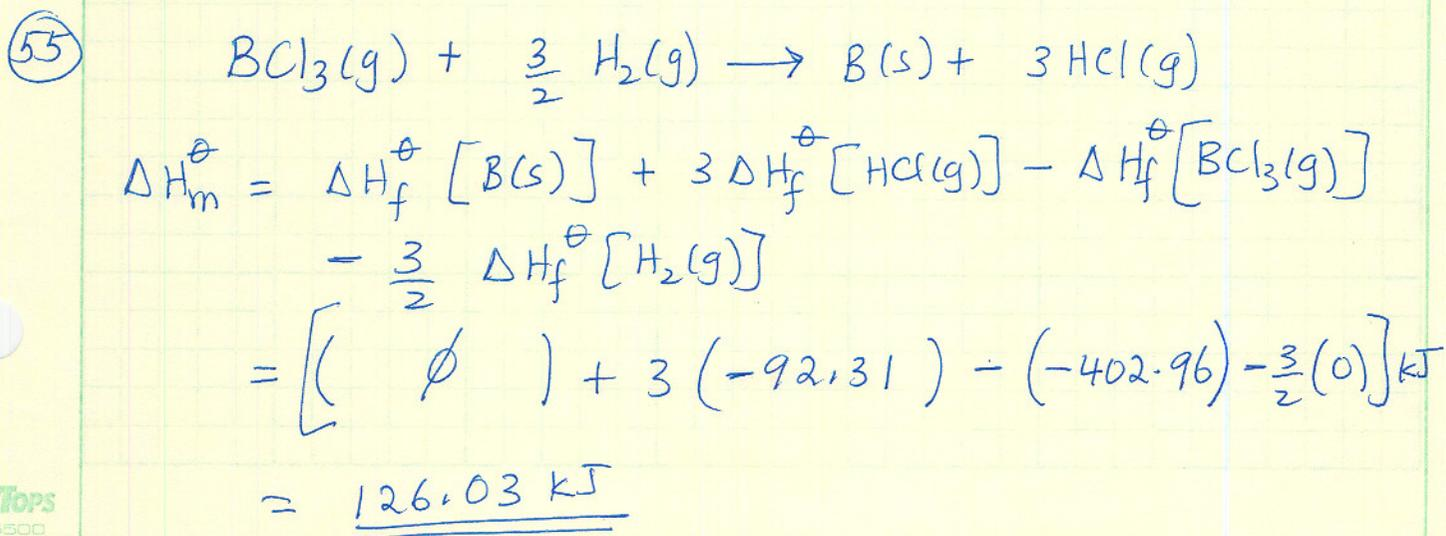 55 BCl3(g) + 3/2 H2(g) → B(s) + 3 HCl(g)
ΔHm⦵ = ΔHf⦵ [B(s)] + 3 ΔHf⦵ [HCl(g)] − ΔHf⦵ [BCl3(g)]
− 3/2 ΔHf⦵ [H2(g)]
= [( ∅ ) + 3 (−92.31) − (−402.96) − 3/2 (0)] kJ
= 126.03 kJ
TOPS
500